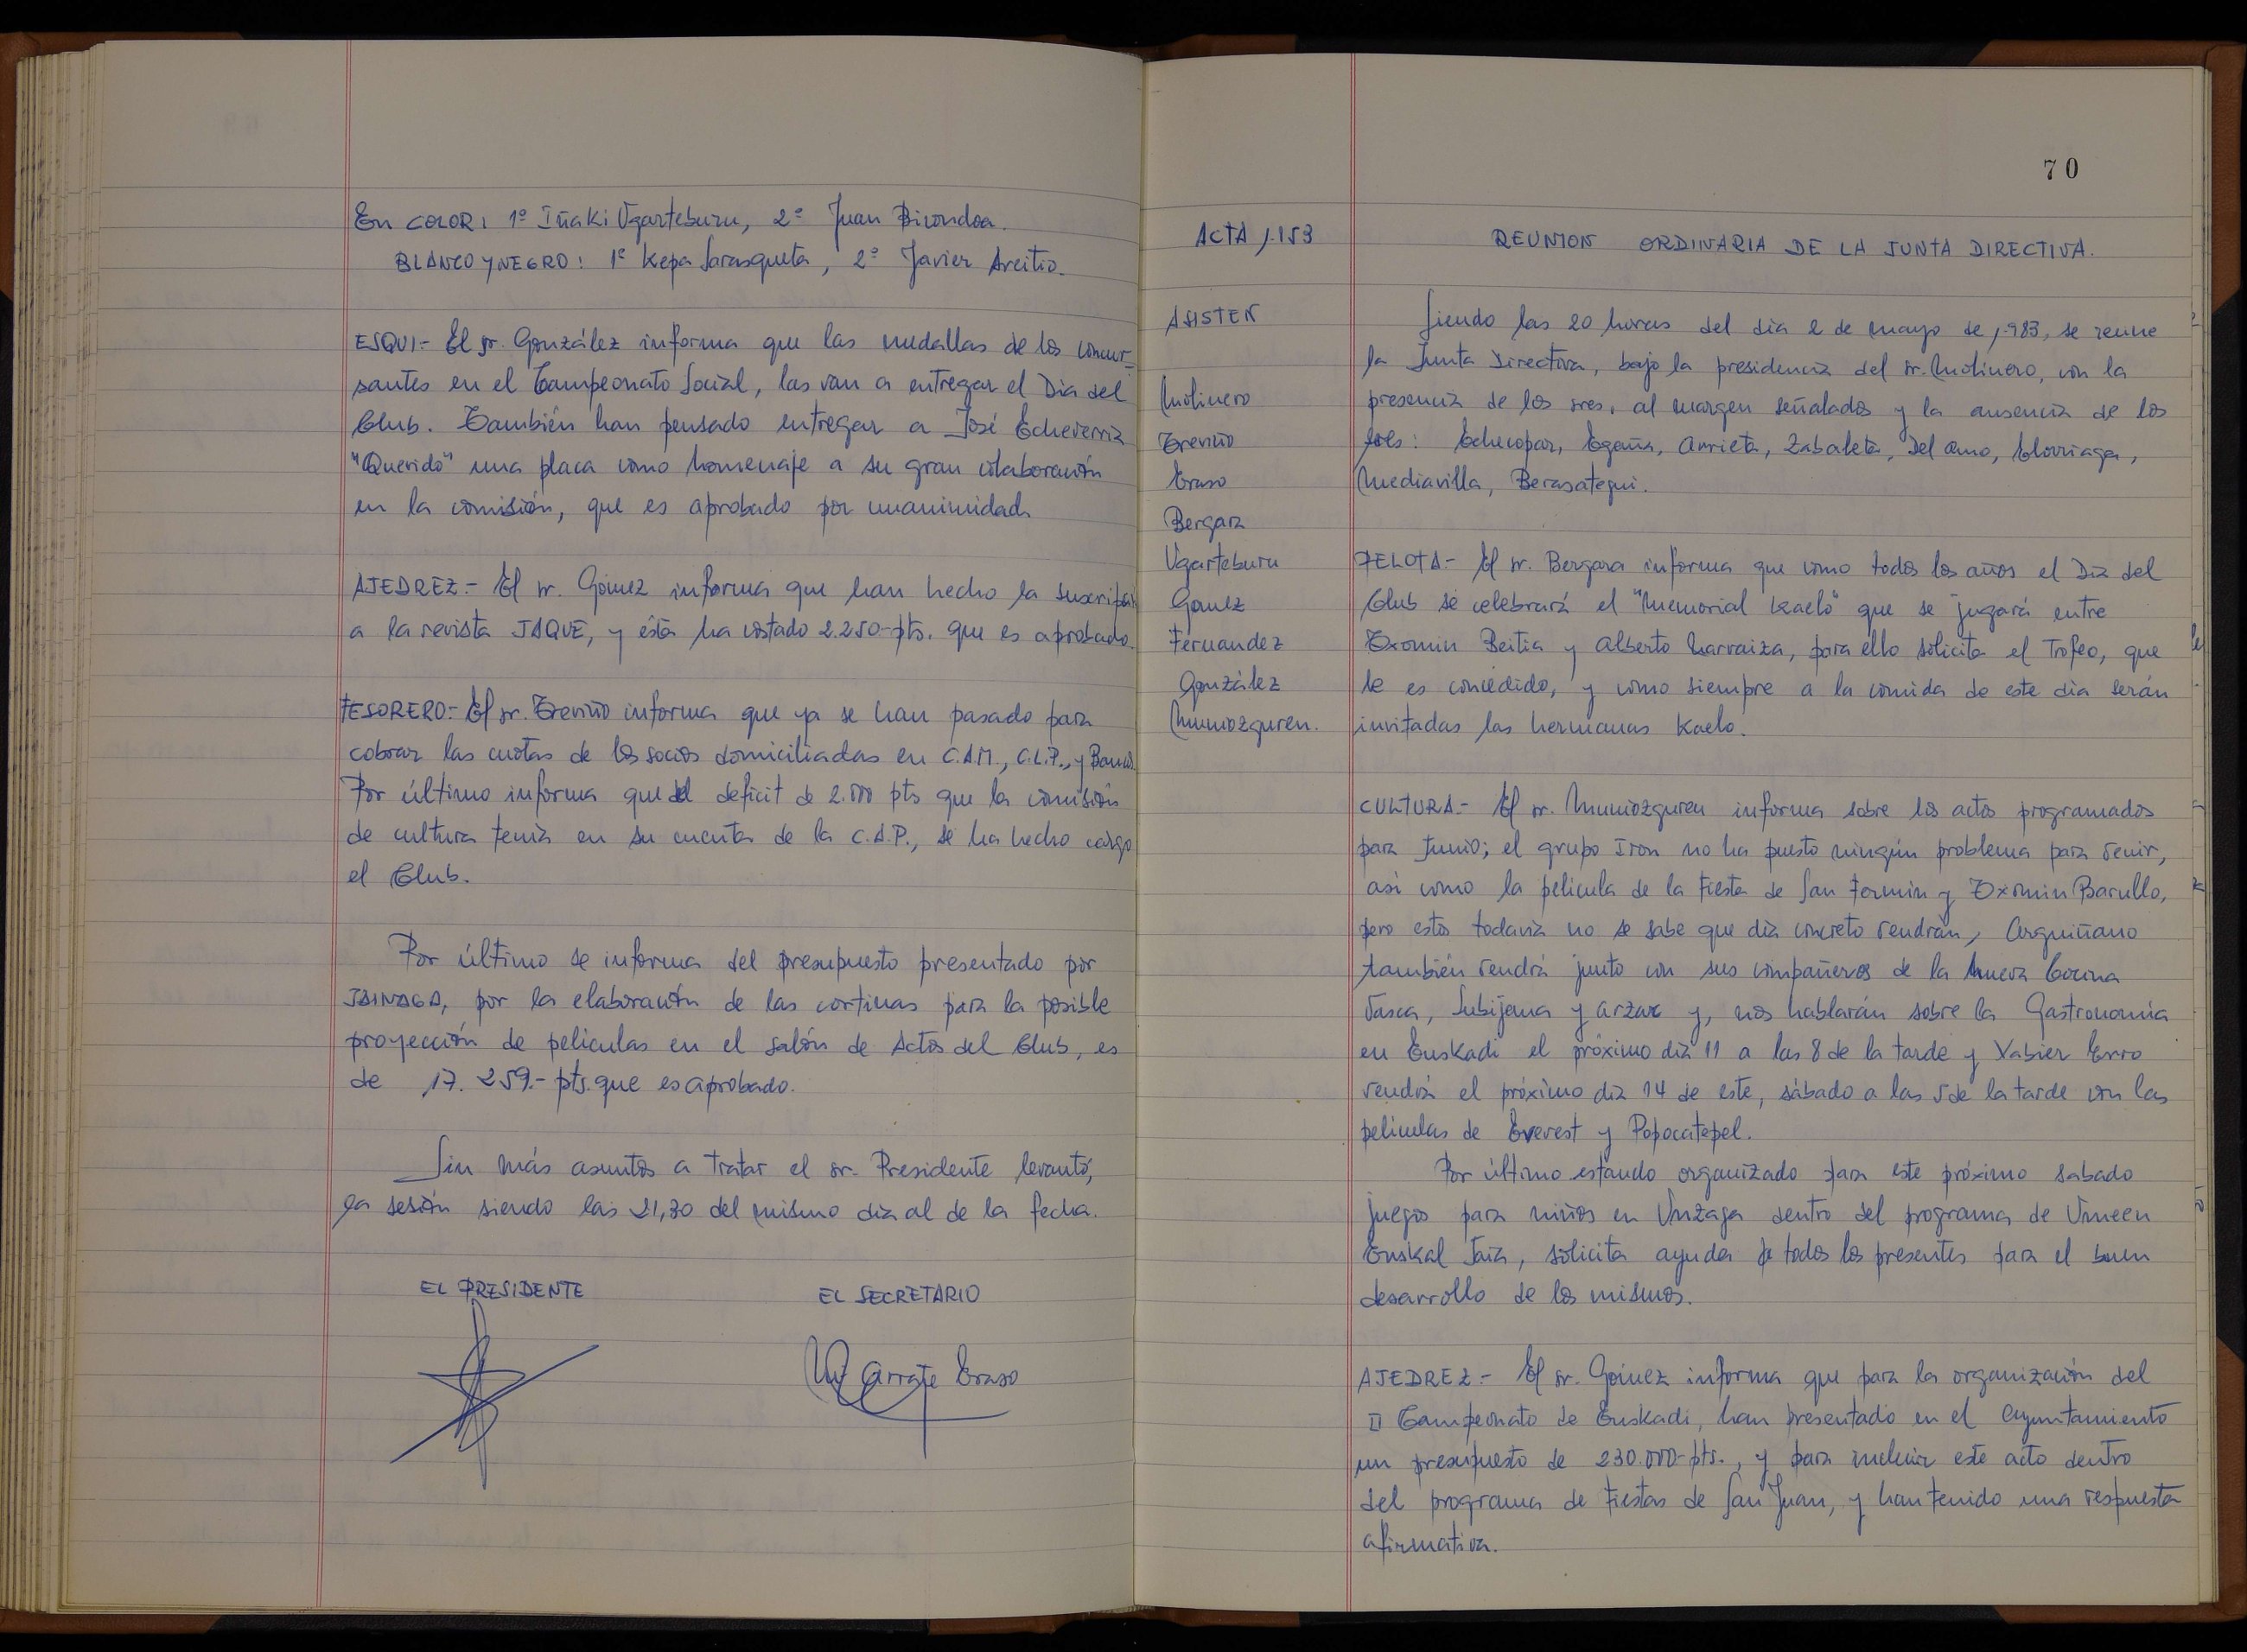 En COLOR: 1º Iñaki Ugarteburu, 2º Juan Birondoa.
BLANCO y NEGRO: 1º Kepa Sarasqueta, 2º Javier Areitio.
ESQUI.- El sr. González informa que las medallas de los concur-
santes en el Campeonato Social, las van a entregar el Dia del
Club. También han pensado entregar a José Echeverria
"Querido" una placa como homenaje a su gran colaboración
en la comisión, que es aprobado por unanimidad.
AJEDREZ.- El sr. Gómez informa que han hecho la suscripción
a la revista JAQUE, y ésta ha costado 2.250-pts. que es aprobado.
TESORERO.- El sr. Treviño informa que ya se han pasado para
cobrar las cuotas de los socios domiciliadas en C.A.M., C.L.P., y Bancos.
Por último informa que del deficit de 2.000 pts que la comisión
de cultura tenia en su cuenta de la C.A.P., se ha hecho cargo
el Club.
Por último se informa del presupuesto presentado por
JAINAGA, por la elaboración de las cortinas para la posible
proyección de peliculas en el salón de Actos del Club, es
de 17.259.- pts. que es aprobado.
Sin más asuntos a tratar el sr. Presidente levantó,
la sesión siendo las 21,30 del mismo dia al de la fecha.
EL PRESIDENTE
EL SECRETARIO
Mª Arrate Eraso
70
ACTA 1.153
REUNION ORDINARIA DE LA JUNTA DIRECTIVA.
ASISTEN
Molinero
Treviño
Eraso
Bergara
Ugarteburu
Gomez
Fernandez
González
Muniozguren.
Siendo las 20 horas del dia 2 de mayo de 1.983, se reune
la Junta Directiva, bajo la presidencia del sr. Molinero, con la
presencia de los sres, al margen señalados y la ausencia de los
sres: Echecopar, Egaña, Arrieta, Zabaleta, Del Amo, Elorriaga,
Mediavilla, Berasategui.
PELOTA.- El sr. Bergara informa que como todos los años el Dia del
Club se celebrará el "Memorial Kaelo" que se jugará entre
Txomin Beitia y Alberto Larraiza, para ello solicita el Trofeo, que
le es concedido, y como siempre a la comida de este dia serán
invitadas las hermanas Kaelo.
CULTURA.- El sr. Muniozguren informa sobre los actos programados
para Junio; el grupo Iron no ha puesto ningún problema para venir,
asi como la pelicula de la Fiesta de San Fermin y Txomin Barullo,
pero estos todavia no se sabe que dia concreto vendrán, Arguiñano
también vendrá junto con sus compañeros de la Nueva Cocina
Vasca, Subijana y Arzac y, nos hablarán sobre la Gastronomia
en Euskadi el próximo dia 11 a las 8 de la tarde y Xabier Erro
vendrá el próximo dia 14 de este, sábado a las 5 de la tarde con las
peliculas de Everest y Popocatepel.
Por último estando organizado para este próximo sabado
juegos para niños en Unzaga dentro del programa de Umeen
Euskal Jaia, solicita ayuda de todos los presentes para el buen
desarrollo de los mismos.
AJEDREZ.- El sr. Gómez informa que para la organización del
II Campeonato de Euskadi, han presentado en el Ayuntamiento
un presupuesto de 230.000-pts., y para incluir este acto dentro
del programa de Fiestas de San Juan, y han tenido una respuesta
afirmativa.